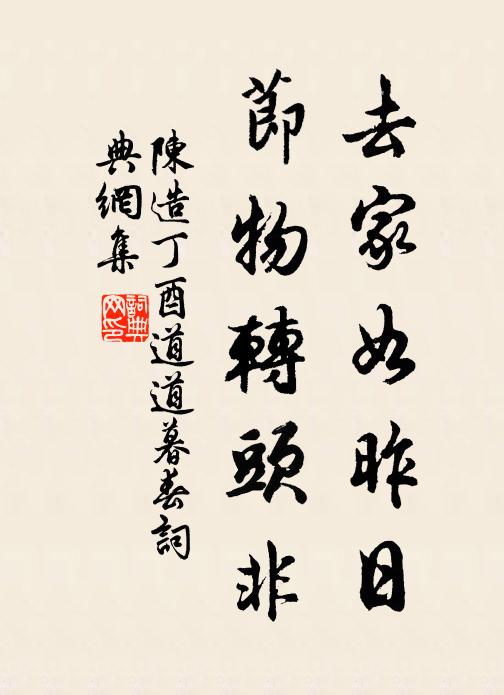 去家如昨日
節物轉頭非
陳造丁酉道道暮春詞
典網集
詞典
网印